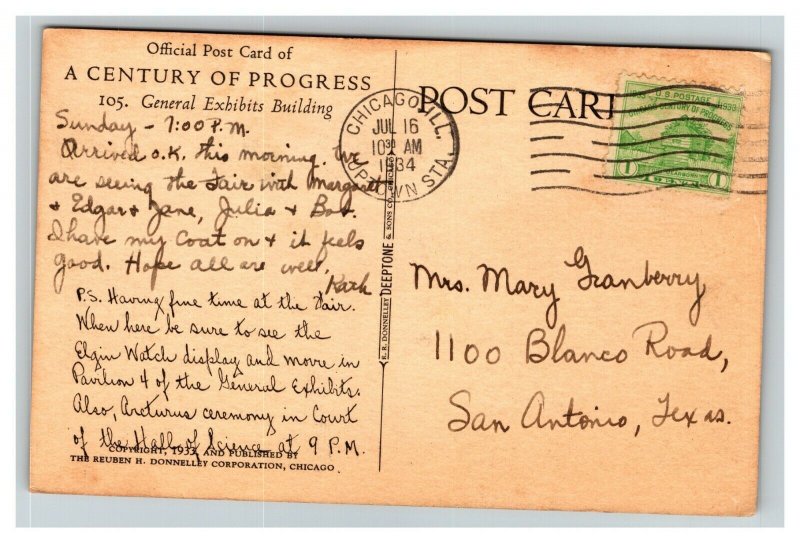 Official Post Card of
A CENTURY OF PROGRESS
105. General Exhibits Building
Sunday - 7:00 P.M.
Arrived O.K. this morning. We
are seeing the Fair with Margaret
+ Edgar + Jane, Julia + Bob.
I have my coat on + it feels
good. Hope all are well,
Kath
P.S. Having fine time at the Fair.
When here be sure to see the
Elgin Watch display and movie in
Pavilion 4 of the General Exhibits.
Also, Arcturus ceremony in Court
of the Hall of Science at 9 P.M.
COPYRIGHT, 1933, AND PUBLISHED BY
THE REUBEN H. DONNELLEY CORPORATION, CHICAGO
R. R. DONNELLEY DEEPTONE & SONS CO., CHICAGO
CHICAGO, ILL.
JUL 16
10 30 AM
1934
UPTOWN STA.
POST CARD
U.S. POSTAGE 1933
CHICAGO CENTURY OF PROGRESS
1 1
Mrs. Mary Granberry
1100 Blanco Road,
San Antonio, Texas.